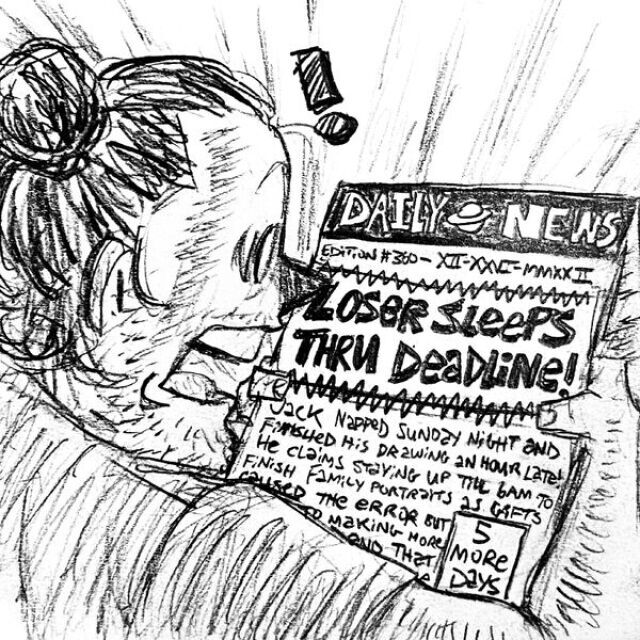 !
DAILY NEWS
EDITION #360 - XII-XXVI-MMXXII
LOSER SLEEPS
THRU DEADLINE!
JACK NAPPED SUNDAY NIGHT AND
FINISHED HIS DRAWING AN HOUR LATE!
HE CLAIMS STAYING UP TILL 6AM TO
FINISH FAMILY PORTRAITS AS GIFTS
CAUSED THE ERROR BUT
TO MAKING MORE
AND THAT
5
MORE
DAYS